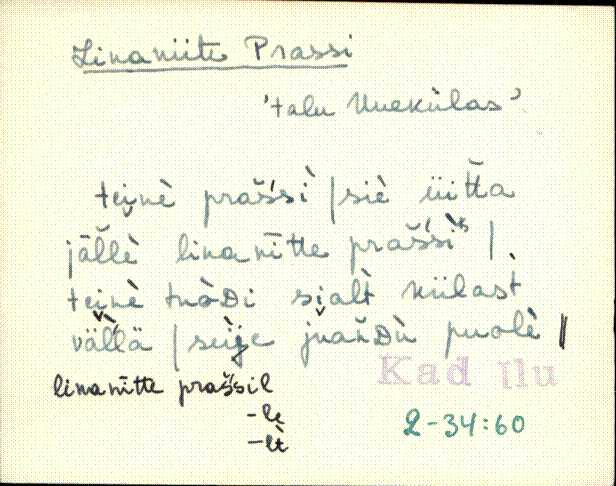 Linaniite Prassi
'talu Uuekülas'
teinè prašśi | siè üitta
jällè linanītte prašśi |
teinè tuòᴅi sialt külast
vällä | seije juaňᴅù puolè |
linanītte prašśil
-le
-lt
Kad Ilu
2-34:60